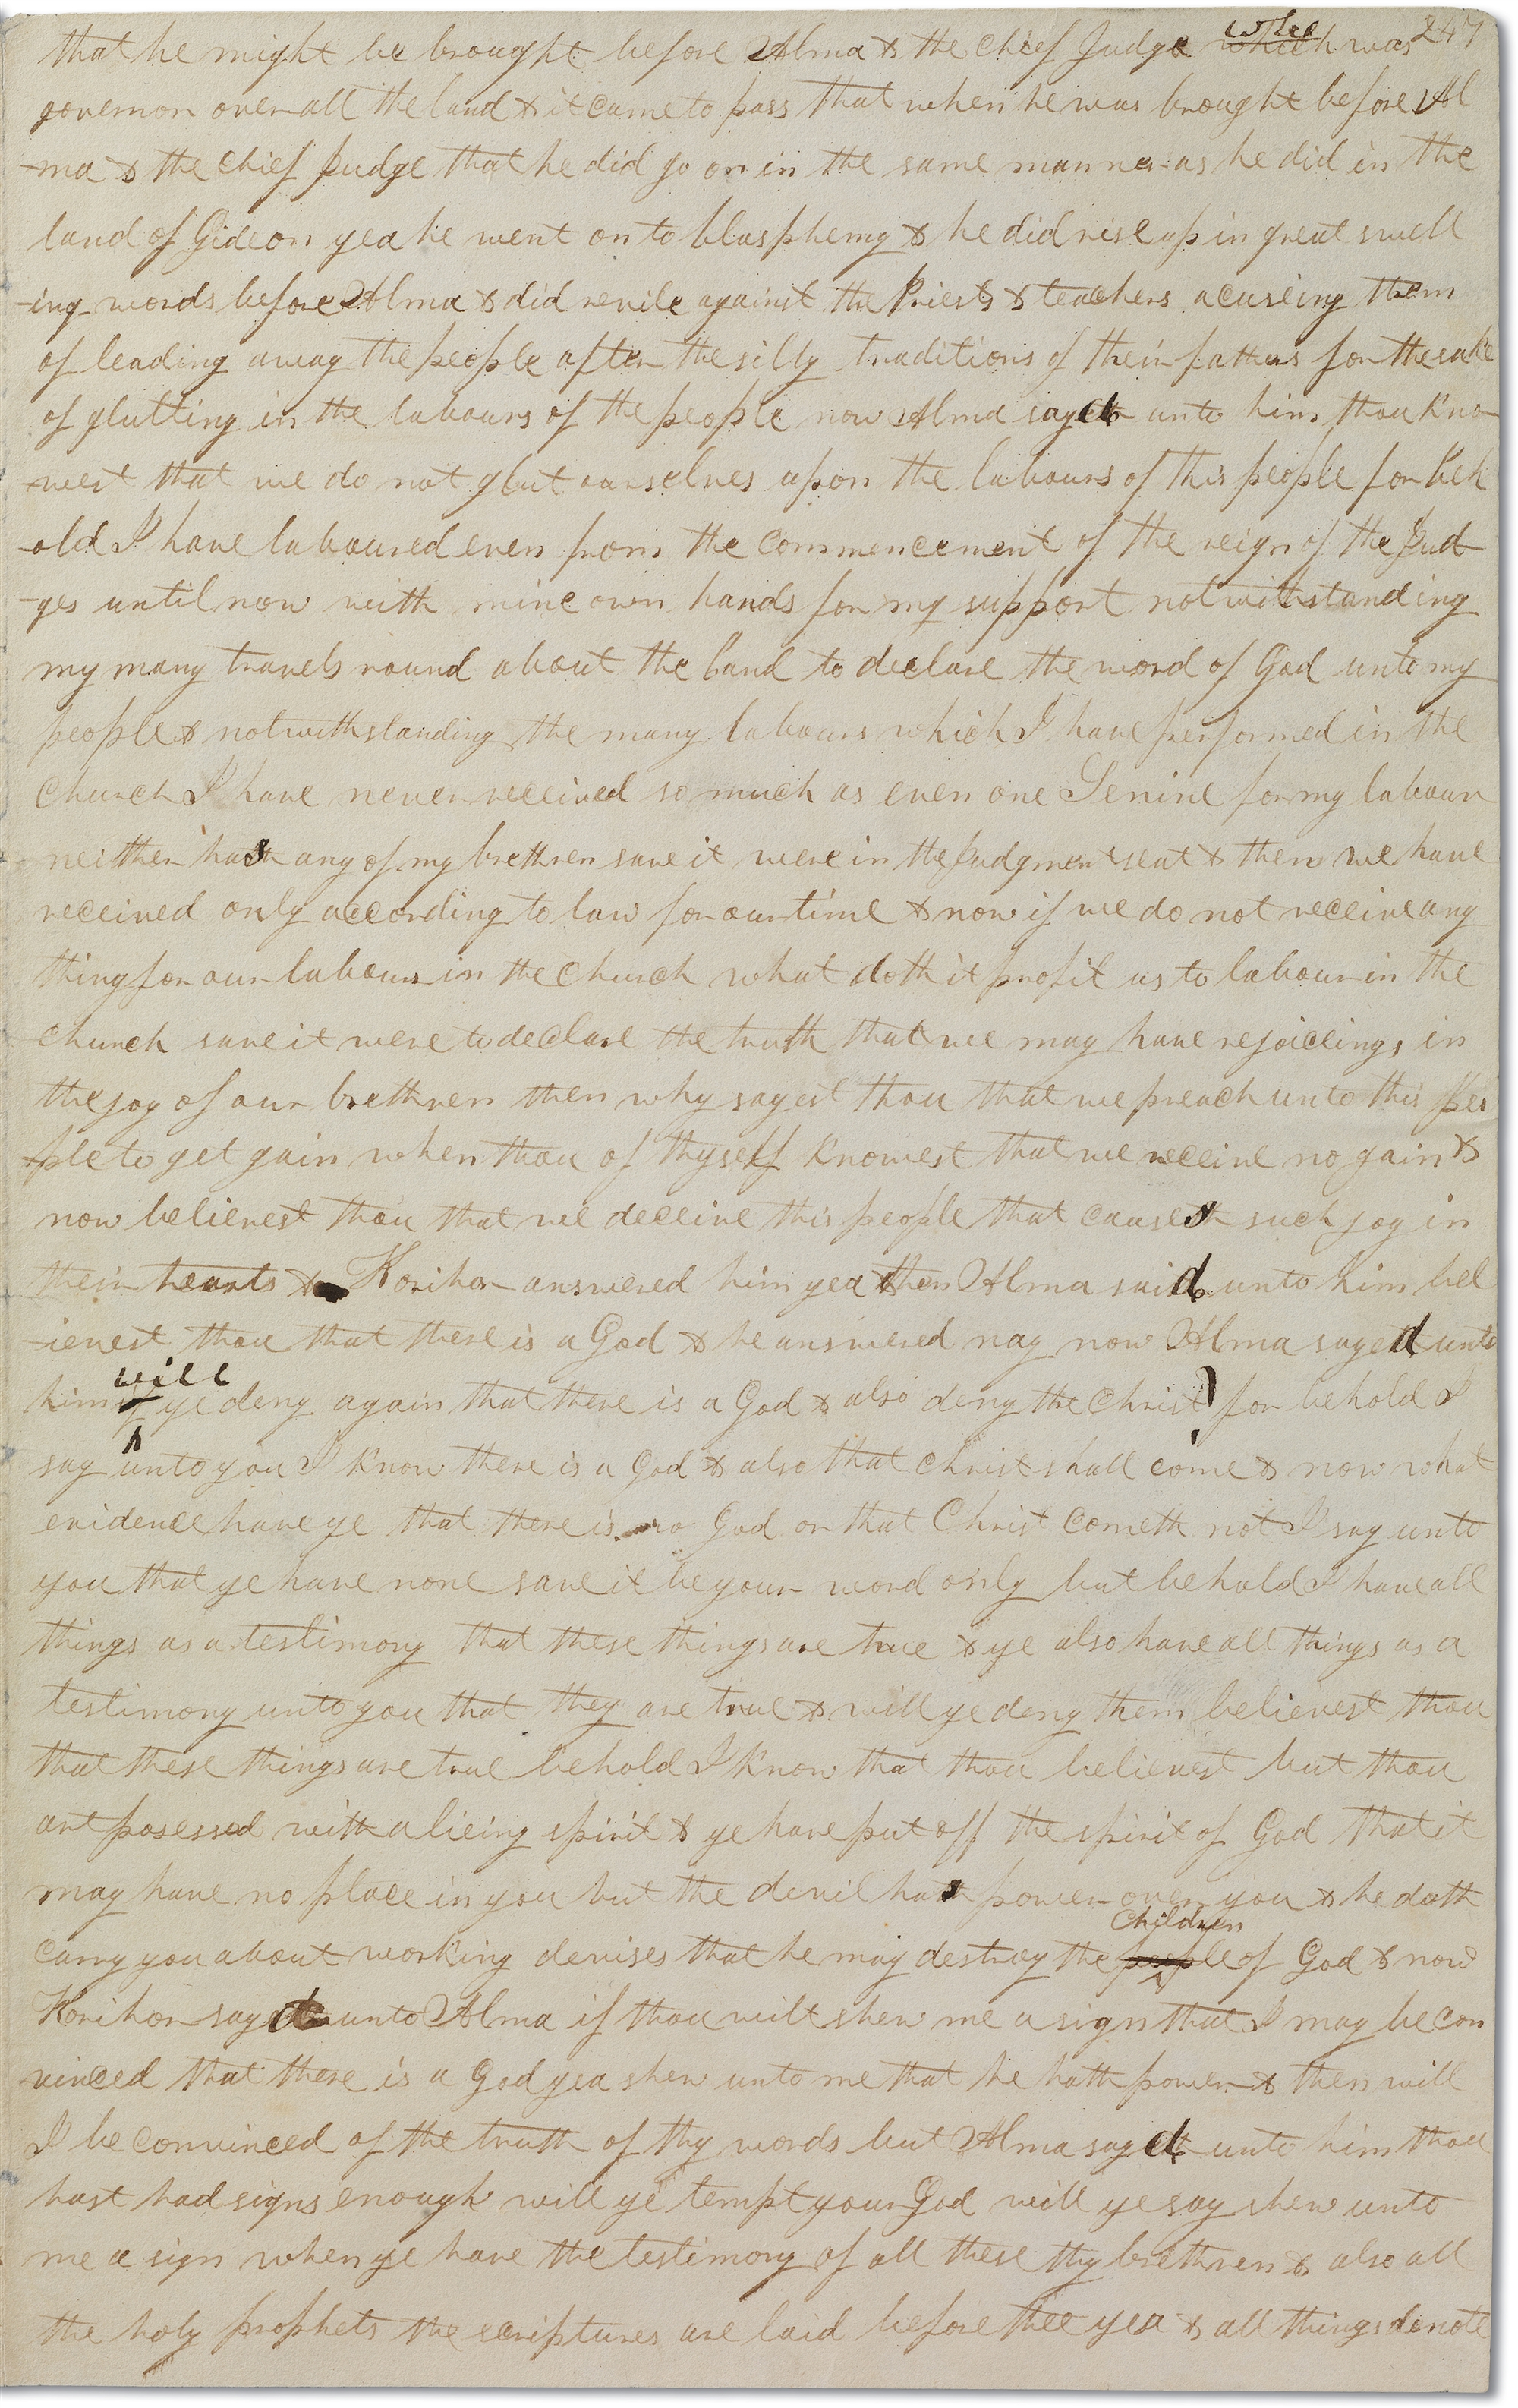 247
that he might be brought before Alma & the chief Judge who which was
governor over all the land & it came to pass that when he was brought before Al
-ma & the chief Judge that he did go on in the same manner as he did in the
land of Gideon yea he went on to blasphemy & he did rise up in great swell
-ing words before Alma & did revile against the Priests & teachers acuseing them
of leading away the people after the silly traditions of their fathers for the sake
of glutting in the labours of the people now Alma sayed unto him thou kno
-west that we do not glut ourselves upon the labours of this people for beh
-old I have laboured even from the commencement of the reign of the Jud
-ges until now with mine own hands for my support notwithstanding
my many travels round about the land to declare the word of God unto my
people & notwithstanding the many labours which I have performed in the
Church I have never received so much as even one Senine for my labour
neither has any of my brethren save it were in the Judgment seat & then we have
received only according to law for our time & now if we do not receive any
thing for our labours in the church what doth it profit us to labour in the
church save it were to declare the truth that we may have rejoiceings in
the joy of our brethren then why sayest thou that we preach unto this peo
-ple to get gain when thou of thyself knowest that we receive no gain &
now believest thou that we deceive this people that causes such joy in
their hearts & Korihor answered him yea then Alma said unto him bel
-ievest thou that there is a God & he answered nay now Alma sayed unto
will
him ye deny again that there is a God & also deny the Christ? for behold I
say unto you I know there is a God & also that Christ shall come & now what
evidence have ye that there is no God or that Christ cometh not I say unto
you that ye have none save it be your word only but behold I have all
things as a testimony that these things are true & ye also have all things as a
testimony unto you that they are true & will ye deny them believest thou
that these things are true behold I know that thou believest but thou
art posessed with a lieing spirit & ye have put off the spirit of God that it
may have no place in you but the devil has power over you & he doth
Children
carry you about working devises that he may destroy the people of God & now
Korihor sayd unto Alma if thou wilt shew me a sign that I may be con
vinced that there is a God yea shew unto me that he hath power & then will
I be convinced of the truth of thy words but Alma sayd unto him thou
hast had signs enough will ye tempt your God will ye say shew unto
me a sign when ye have the testimony of all these thy brethren & also all
the holy prophets the scriptures are laid before thee yea & all things denote